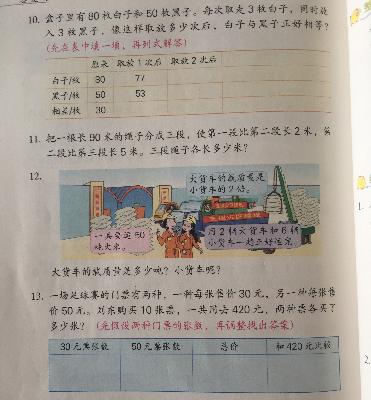 10. 盒子里有80枚白子和50枚黑子。每次取走3枚白子，同时放
入3枚黑子，像这样取放多少次后，白子与黑子正好相等？
（先在表中填一填，再列式解答）
原来 取放1次后 取放2次后
白子/枚 80 77
黑子/枚 50 53
相差/枚 30
11. 把一根长90米的绳子分成三段，使第一段比第二段长2米，第
二段比第三段长5米。三段绳子各长多少米？
12.
大货车的载质量是
小货车的2倍。
一共要运50
吨大米。
用2辆大货车和6辆
小货车一起正好运完。
大货车的载质量是多少吨？小货车呢？
13. 一场足球赛的门票有两种，一种每张售价30元，另一种每张售
价50元。刘东购买10张票，一共用去420元，两种票各买了
多少张？（先假设两种门票的张数，再调整找出答案）
30元票张数 50元票张数 总价 和420元比较
1.
2.